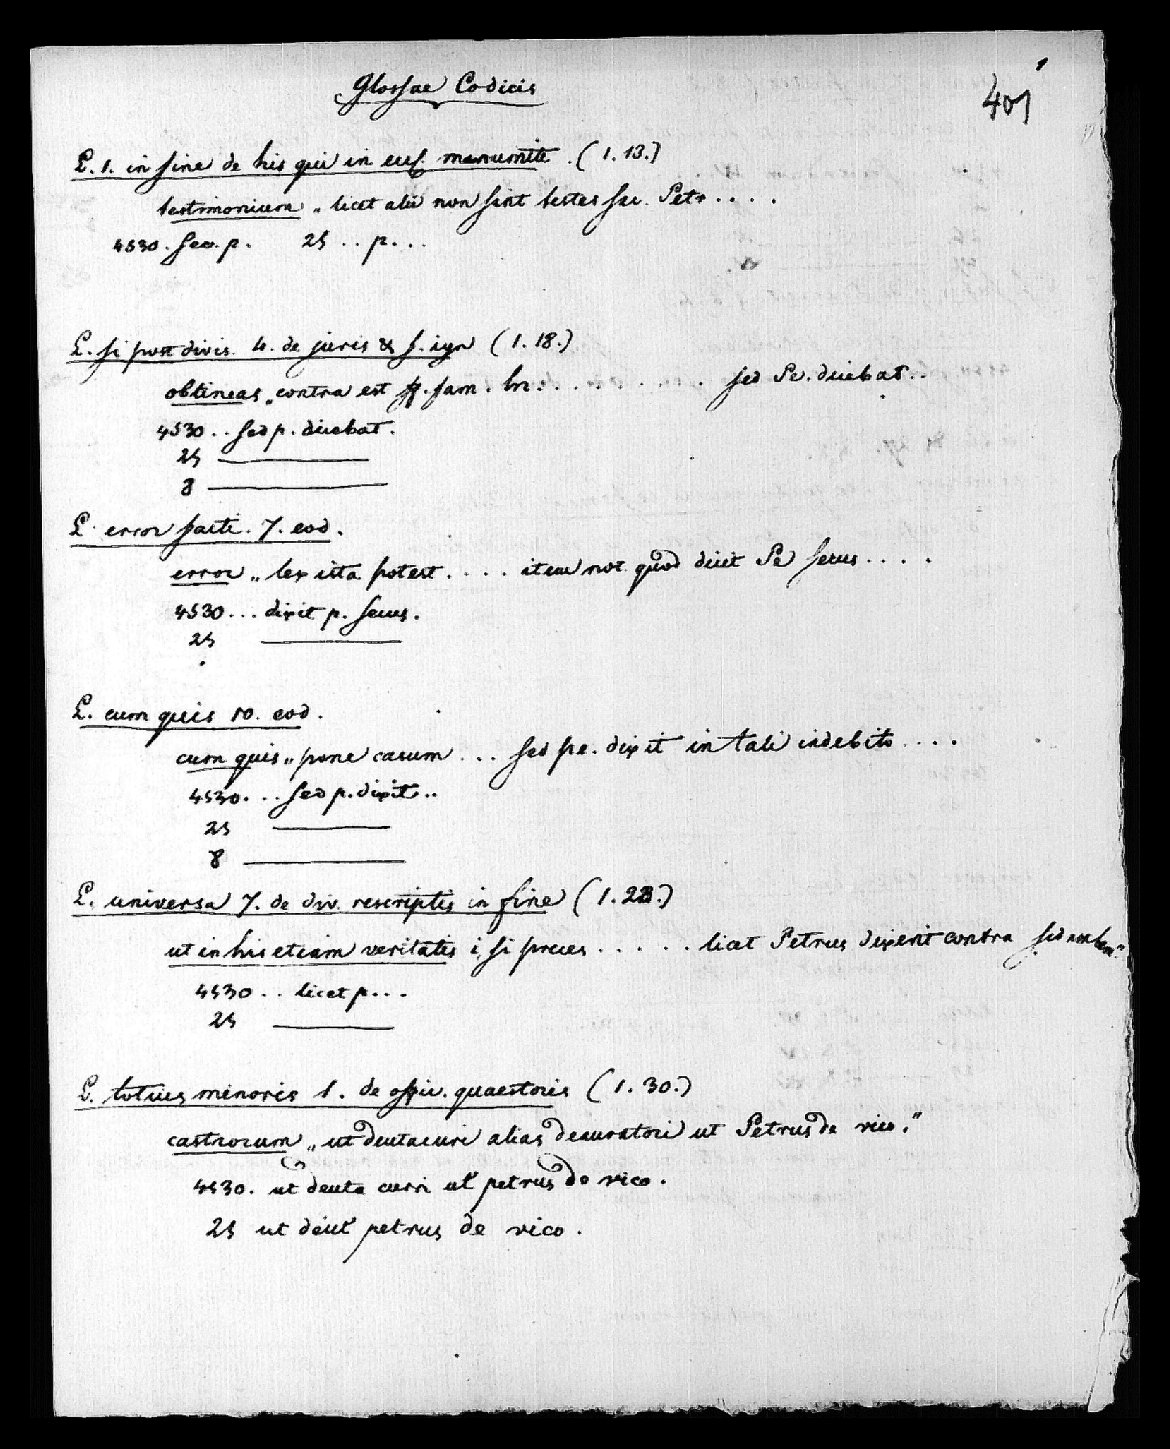 Glossae Codicis
401
L. 1. in fine de his qui in eccl. manumitt. (1.13.)
testimonium „ licet alii non sint testes sec. Petr. . . .
4530. sec. p. 25 . . p. . .
L. si post divis. 4. de juris & f. ign (1.18.)
obtineas „ contra est ff. fam. hr. . . . . . . . sed Pe. dicebat . .
4530 . . sed p. dicebat.
25
8
L. error facti. 7. eod.
error „ lex ista potest . . . . item not. quod dicit Pe secus . . . .
4530 . . . dixit p. secus.
25
L. cum quis 10. eod.
cum quis „ pone casum . . . sed pe. dixit in tali indebito . . . .
4530. . . sed p. dixit . .
25
8
L. universa 7. de div. rescriptis in fine (1.23.)
ut in his etiam veritatis i. si preces . . . . . licet Petrus dixerit contra
4530 . . licet p. . .
25
L. totius minoris 1. de offic. quaestoris (1.30.)
castrorum „ ut deutacuri alias decuratori ut Petrus de vico."
4530. ut deuta curri ut petrus de vico.
25 ut petrus de vico.